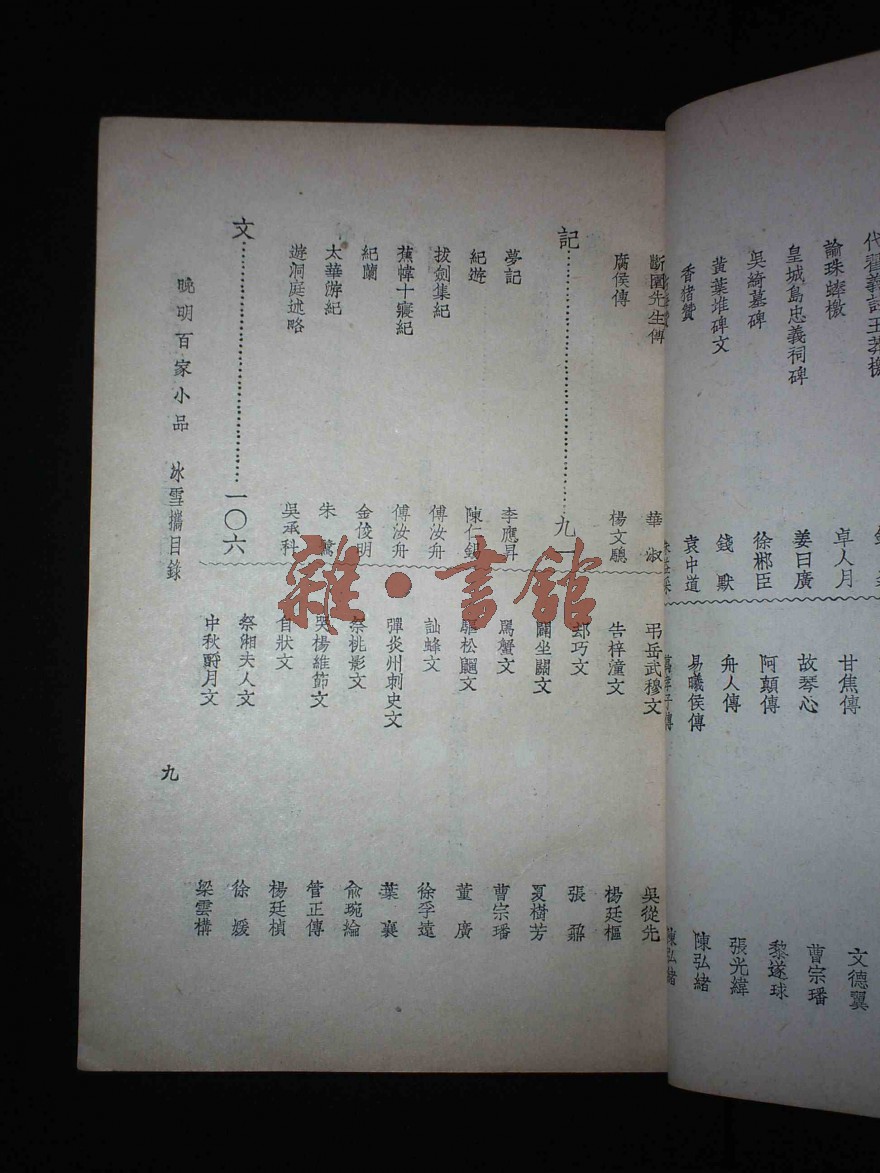 代翟義討王莽檄
諭珠蟀檄 卓人月
皇城島忠義祠碑 姜曰廣
吳綺墓碑 徐郴臣
黃葉堆碑文 錢 默
香猪贊 袁中道
甘焦傳 文德翼
故琴心 曹宗璠
阿顛傳 黎遂球
舟人傳 張光緯
易曦侯傳 陳弘緒
陳弘緒
斷園先生傳 華 淑
腐侯傳 楊文驄
記……………………九一
夢記 李應昇
紀遊 陳仁錫
拔劍集紀 傅汝舟
蕉幃十癡紀 傅汝舟
紀蘭 金俊明
太華游紀 朱 鷺
遊洞庭述略 吳承科
文……………………一〇六
弔岳武穆文 吳從先
告梓潼文 楊廷樞
却巧文 張 鼐
闢坐關文 夏樹芳
罵蟹文 曹宗璠
驅松颸文 董 廣
訕蜂文 徐季遠
彈炎州刺史文 葉 襄
祭桃影文 俞琬綸
哭楊維節文 管正傳
自狀文 楊廷楨
祭湘夫人文 徐 媛
中秋爵月文 梁雲構
晚明百家小品 冰雪攜目錄
九
雜·書館